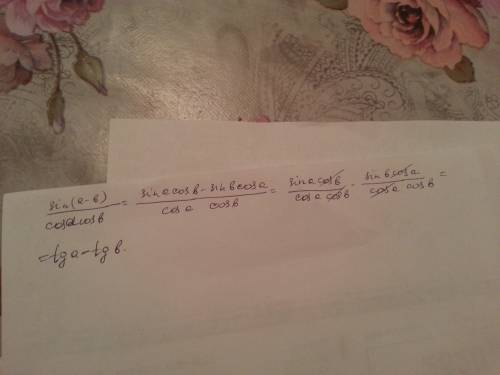 sin(a-b)/cosa cosb = sina cosb - sinb cosa/cosa cosb = sina cosb/cosa cosb - sinb cosa/cosa cosb =
= tg a - tg b.